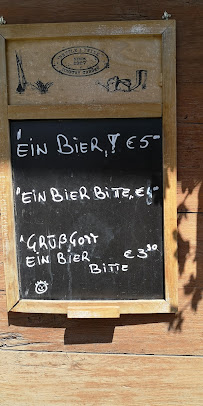 "EIN BIER,!" €5⁻
"EIN BIER BITTE," €4⁻
"GRÜßGOTT
EIN BIER €3³⁰
BITTE